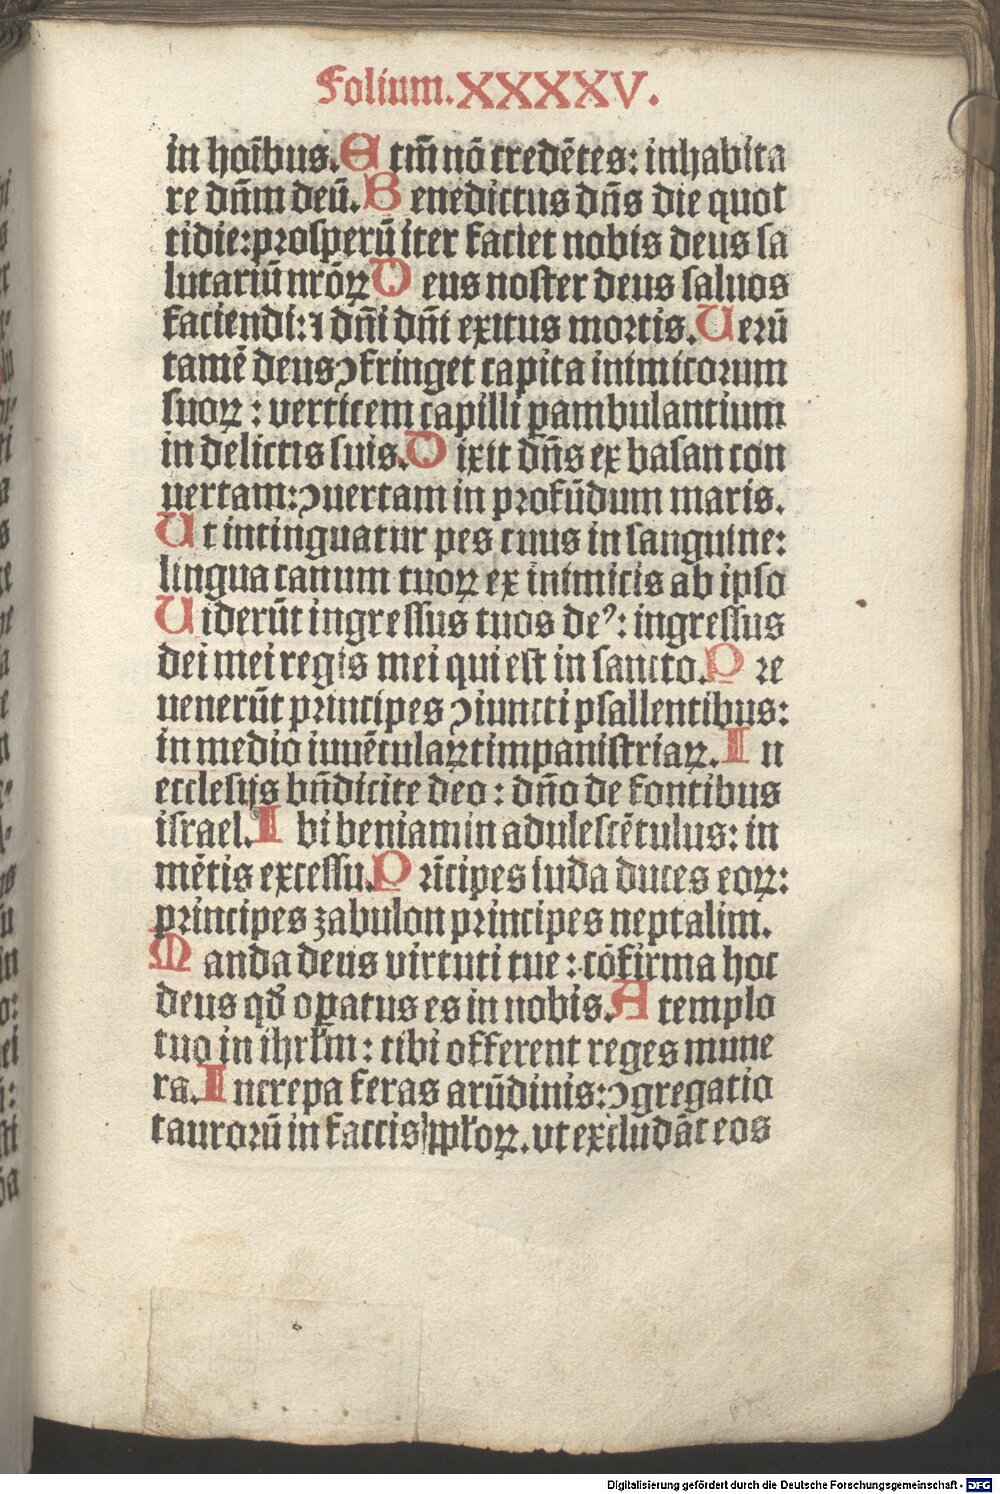 Folium.XXXXV.
in hoībus. Etm̄ nō credētes: inhabita
re dn̄m deū. Benedictus dn̄s die quot
tidie: prosperū iter faciet nobis deus sa
lutariū nrōꝝ Deus noster deus saluos
faciendi: ⁊ dn̄i dn̄i exitus mortis. Uerū
tamē deus ꝯfringet capita inimicorum
suoꝝ: verticem capilli ꝑambulantium
in delictis suis. Dixit dn̄s ex basan con
uertam: ꝯuertam in profūdum maris.
Ut intinguatur pes tuus in sanguine:
lingua canum tuoꝝ ex inimicis ab ipso
Uiderūt ingressus tuos deꝰ: ingressus
dei mei regis mei qui est in sancto. Pre
uenerūt principes ꝯiuncti psallentibus:
in medio iuuēculaꝝ timpanistriaꝝ. In
ecclesijs bn̄dicite deo: dn̄o de fontibus
israel. Ibi beniamin adulescētulus: in
mētis excessu. Prīcipes iuda duces eoꝝ:
principes zabulon principes neptalim.
Manda deus virtuti tue: cōfirma hoc
deus qđ oꝑatus es in nobis. A templo
tuo in ihrłm: tibi offerent reges mune
ra. Increpa feras arūdinis: ꝯgregatio
taurorū in faccis ppłoꝝ. ut excludāt eos
Digitalisierung gefördert durch die Deutsche Forschungsgemeinschaft - DFG